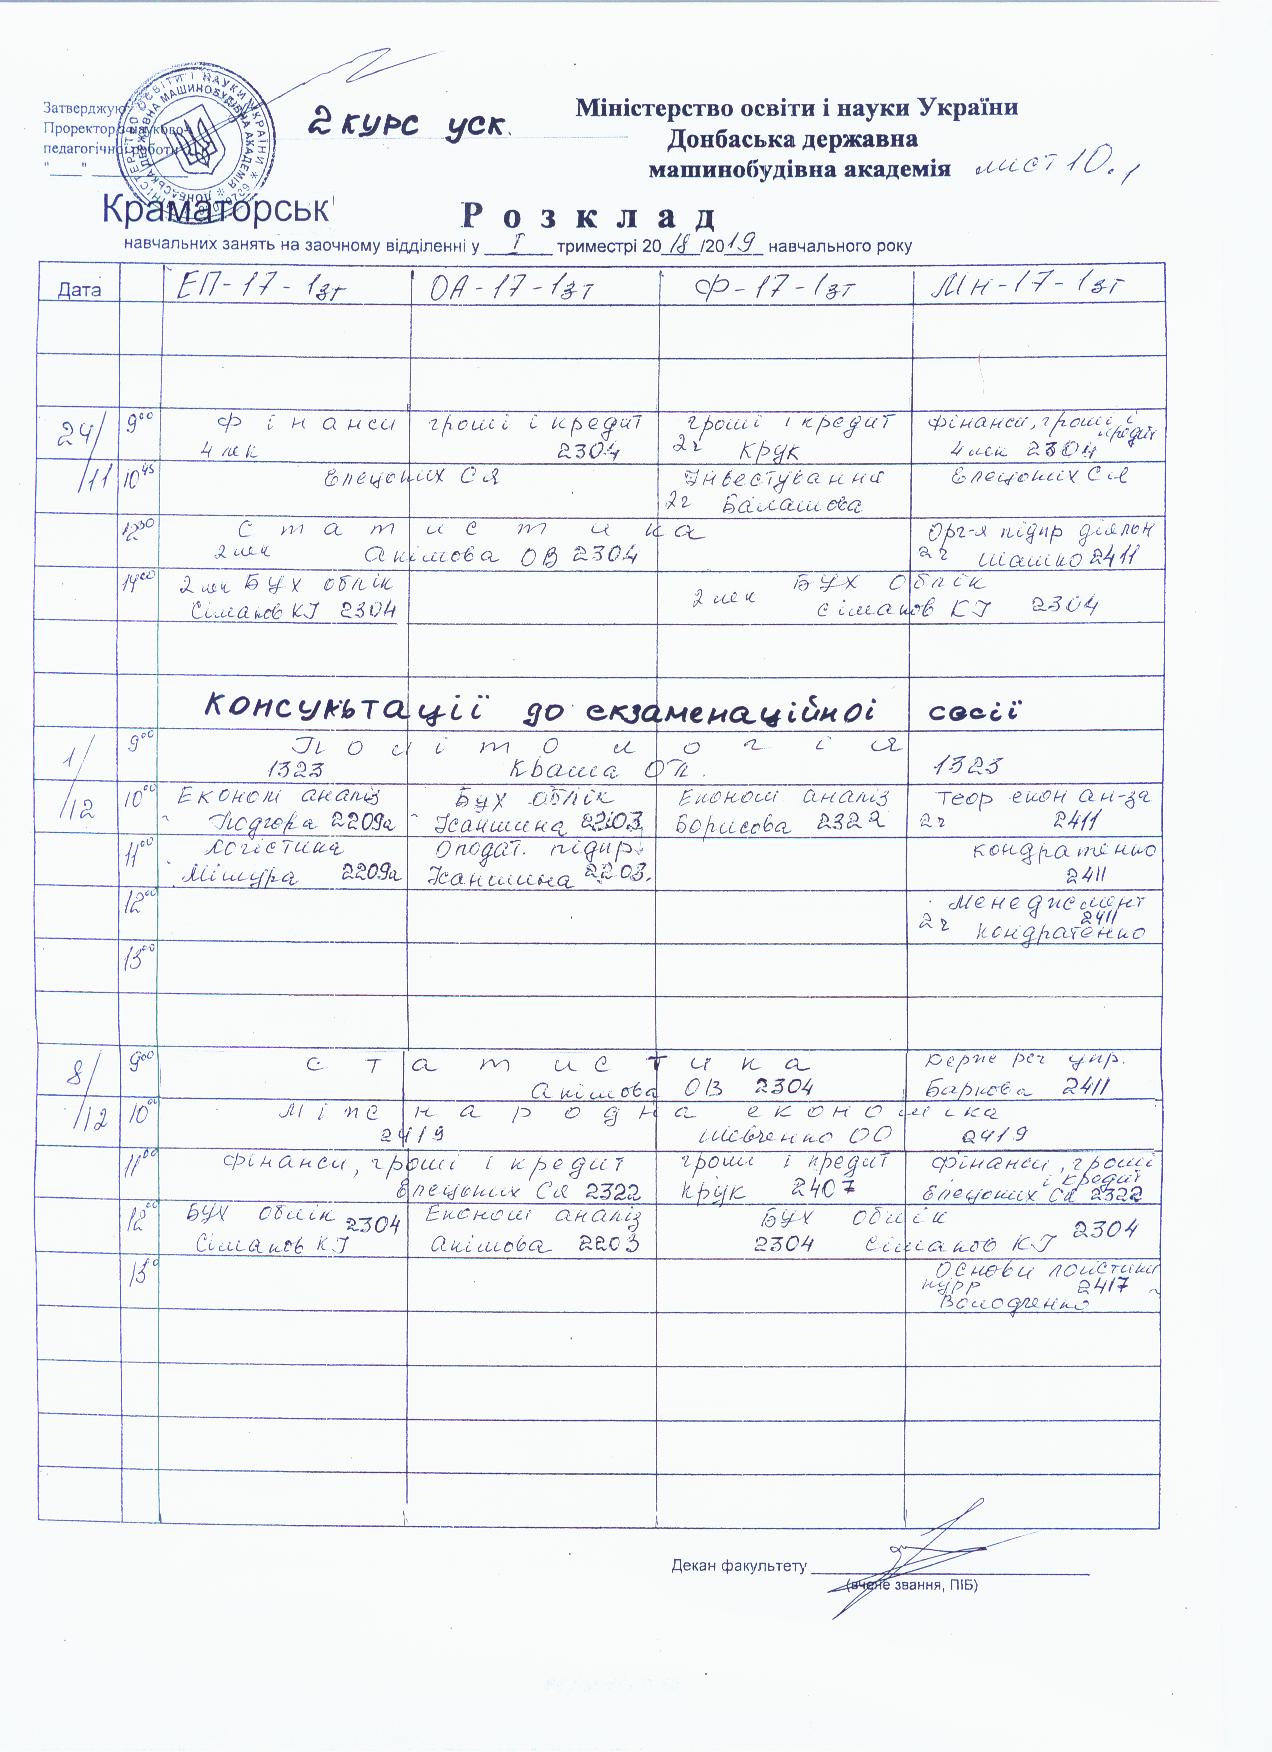 Затверджую
Проректор з науково-
педагогічної роботи
"____" ____________
2 курс уск.
Міністерство освіти і науки України
Донбаська державна
машинобудівна академія
лист 10.1
Краматорськ
Розклад
навчальних занять на заочному відділенні у I триместрі 2018/2019 навчального року
Дата ЕП-17-1зт ОА-17-1зт Ф-17-1зт Мн-17-1зт
24/11 9⁰⁰ Фінанси гроші і кредит гроші і кредит Фінанси, гроші і кредит
4 лек 2304 2г Крук 4 лек 2304
10⁴⁵ Єлецьких СЯ Інвестування Єлецьких СЯ
2г Балашова
12³⁰ Статистика Орг-я підпр діяльн
2 лек Акімова ОВ 2304 2г Шашко 2411
14⁰⁰ 2 лек Бух облік Бух облік
Сіманов КГ 2304 2 лек Сіманов КГ 2304
Консультації до екзаменаційної сесії
1/12 9⁰⁰ Політологія
1323 Кваша ОП. 1323
10⁰⁰ Економ аналіз Бух облік Економ аналіз Теор екон ан-за
Подгора 2209а Ісаншина 2203 Борисова 2322 2г 2411
11⁰⁰ Логістика Оподат. підпр. Кондратенко
Мішура 2209а Ісаншина 2203. 2411
12⁰⁰ Менеджмент
2411
2г Кондратенко
13⁰⁰
8/12 9⁰⁰ Статистика Держ рег упр.
Акімова ОВ 2304 Баркова 2411
10⁰⁰ Міжнародна економіка
2419 Шевченко ОО 2419
11⁰⁰ Фінанси, гроші і кредит гроші і кредит Фінанси, гроші і кредит
Єлецьких СЯ 2322 Крук 2407 Єлецьких СЯ 2322
12⁰⁰ Бух облік 2304 Економ аналіз Бух облік 2304
Сіманов КГ Акімова 2203 2304 Сіманов КГ
13⁰⁰ Основи логістики
курр 2417
Володченко
Декан факультету
(вчене звання, ПІБ)